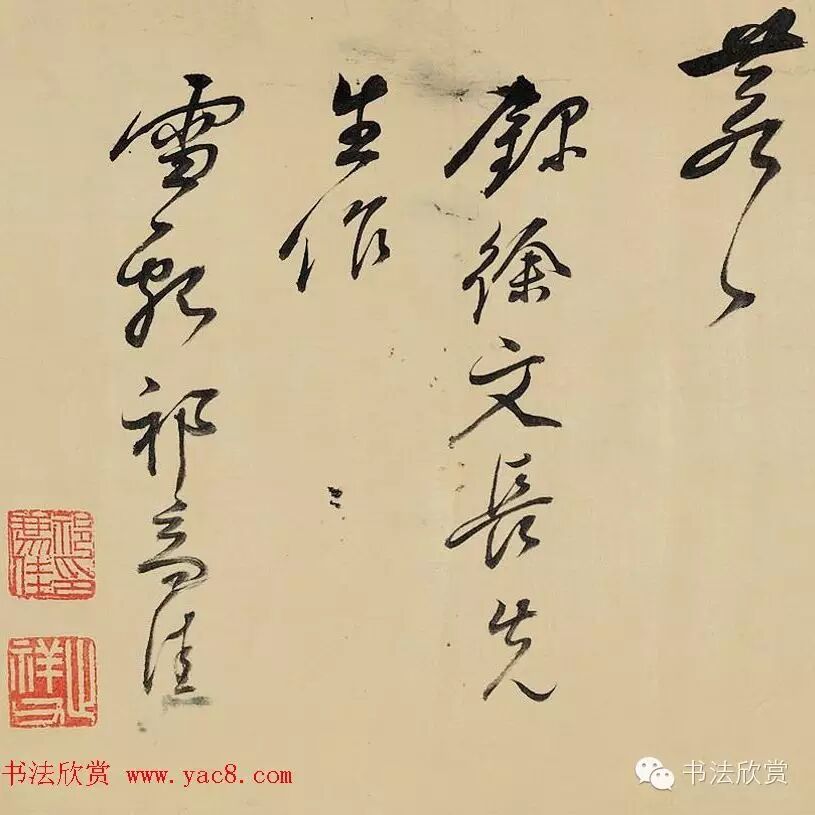 錄徐文長先
生作
雪瓢祁豸佳
祁豸佳印
止祥
书法欣赏 www.yac8.com
书法欣赏